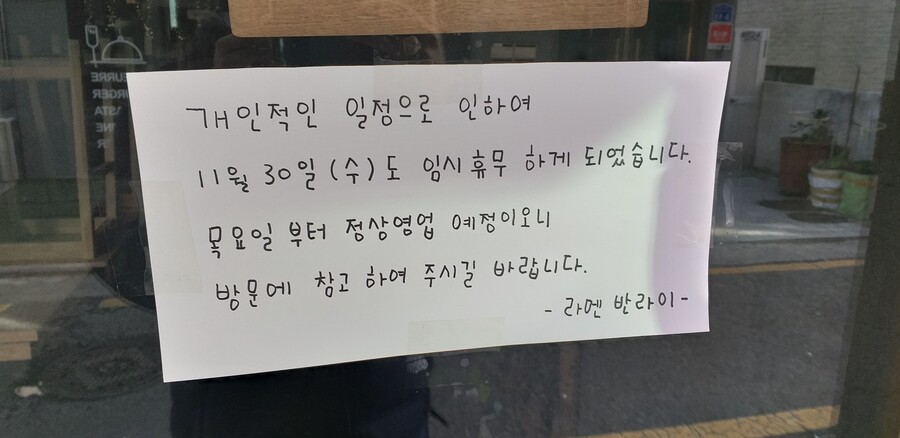 개인적인 일정으로 인하여
11월 30일 (수)도 임시휴무 하게 되었습니다.
목요일 부터 정상영업 예정이오니
방문에 참고 하여 주시길 바랍니다.
- 라멘 반라이 -